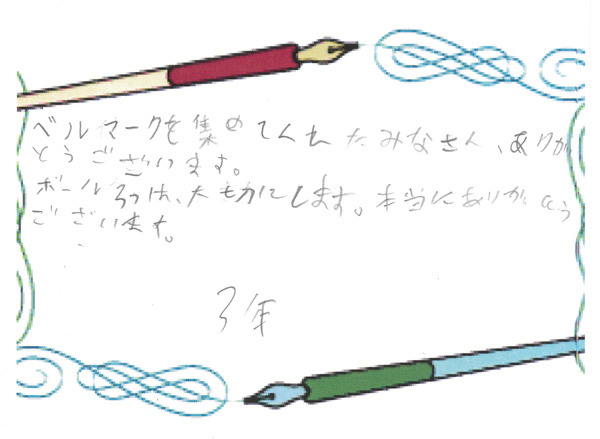 ベルマークを集めてくれたみなさん、ありが
とうございます。
ボール3つは、大切にします。本当にありがとう
ございます。
3年